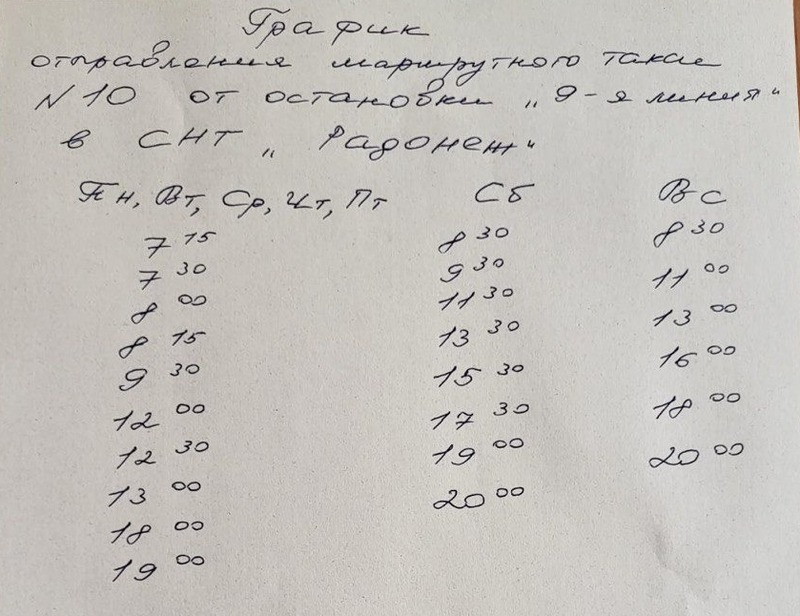 График
отправления маршрутного такси
N 10 от остановки „9-я линия"
в СНТ „Радонеж"
Пн, Вт, Ср, Чт, Пт Сб Вс
7 15 8 30 8 30
7 30 9 30 11 00
8 00 11 30 13 00
8 15 13 30 16 00
9 30 15 30 18 00
12 00 17 30 20 00
12 30 19 00
13 00 20 00
18 00
19 00